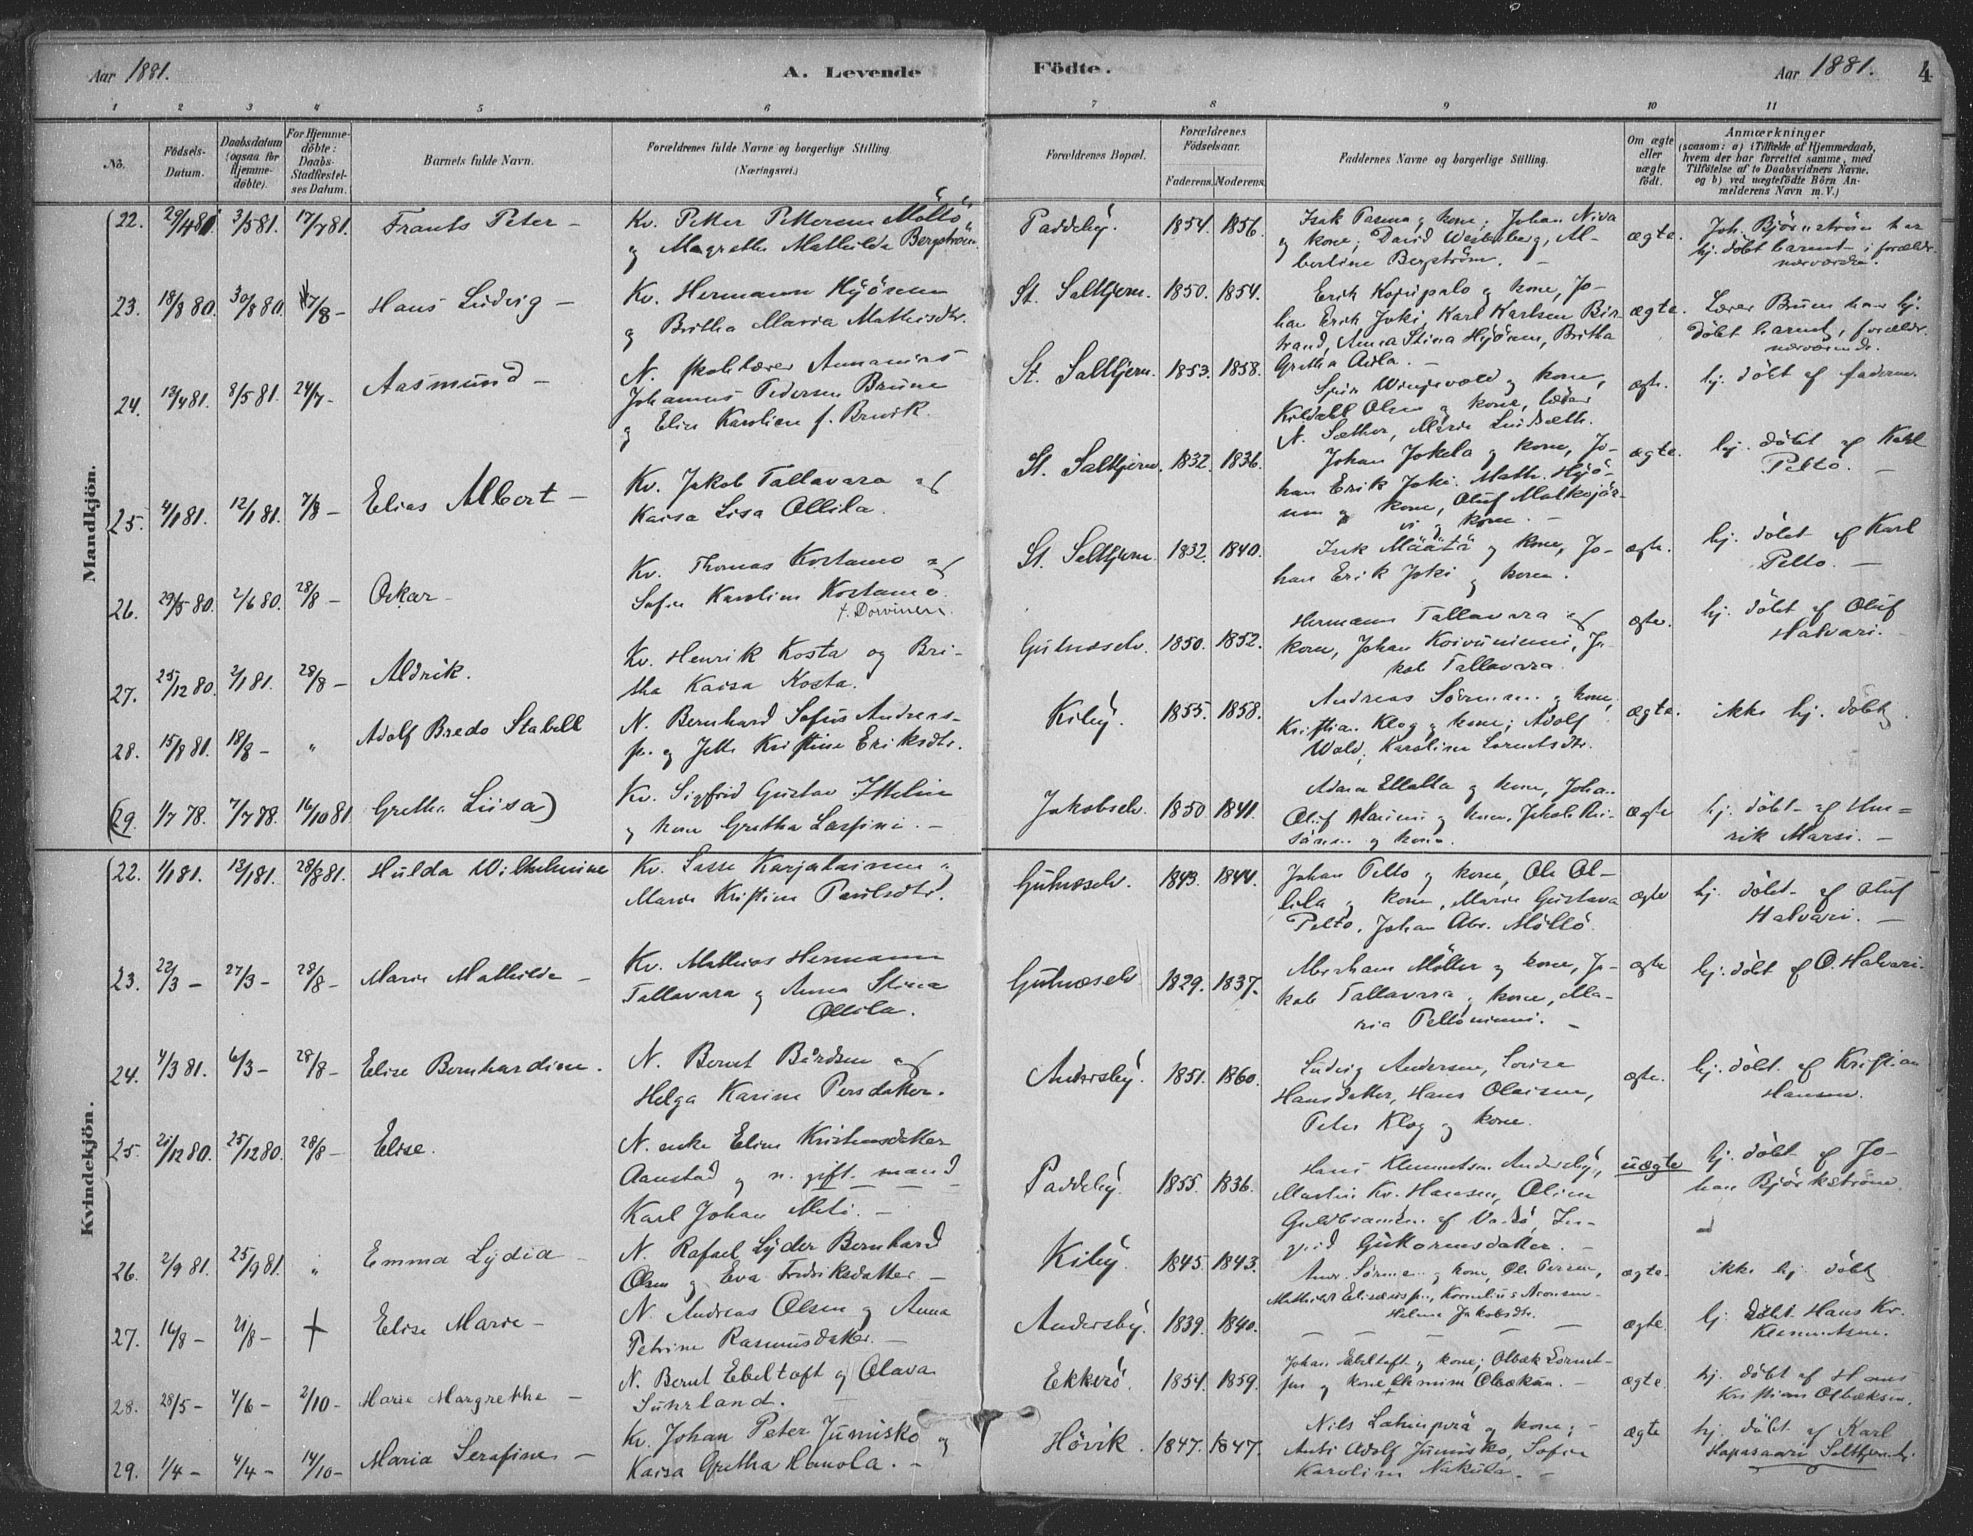 Aar 1881.
A. Levende
Födte.
Aar 1881.
4
1 2 3 4 5 6 7 8 9 10 11
No.
Födsels-Datum.
Daabsdatum (ogsaa for Hjemmedöbte).
For Hjemmedöbte: Daabs-Stadfæstelses Datum.
Barnets fulde Navn.
Forældrenes fulde Navne og borgerlige Stilling.
(Næringsvei.)
Forældrenes Bopæl.
Forældrenes Födselsaar.
Faderens. Moderens.
Faddernes Navne og borgerlige Stilling.
Om ægte eller uægte födt.
Anmærkninger
(saasom: a) i Tilfælde af Hjemmedaab,
hvem der har forrettet samme, med
Tilföielse af to Daabsvidners Navne,
og b) ved uægtefödte Börn Anmelderens Navn m. V.)
Mandkjön.
22. 29/4 81 3/5 81. 17/7 81. Frants Peter –
Kv. Petter Pettersen Möllö
og Magrethe Mathilde Bergström
Paddeby. 1854. 1856.
Isak Parma og kone, Johan Niva
og kone, David Westerberg, Al-
bertine Bergström. –
ægte.
Joh. Bjørnstrøm har
hj. døbt barnet i forældr.
nærværelse.
23. 18/8 80. 30/8 80. 7/8 – Hans Ludvig –
Kv. Hermann Hyönen
og Britha Maria Mathisdtr.
St. Saltkjern. 1850. 1854.
Erik Kopispalo og kone, Jo-
han Erik Joki, Karl Karlsen Bir
trand, Anna Stina Hyönen, Britha
Gretha Aila. –
ægte.
Lærer Brune har hj.
døbt barnet, forældr.
nærværende.
24. 13/4 81. 8/5 81. 24/7 – Aasmund –
N. skolelærer Annanias
Johannes Pedersen Brune
og Eline Karoline f. Brevik.
St. Saltkjern. 1853. 1858.
kone,
Kildahl Olsen og kone, lærer
N. Sæther, Marie Lindsæth.
ægte.
hj. døbt af faderen.
25. 4/1 81. 12/1 81. 7/8 – Elias Albert –
Kv. Jakob Tallavara og
Kaisa Lisa Ollila.
St. Saltkjern. 1832. 1836.
Johan Jokela og kone, Jo-
han Erik Joki. Math. Hyö-
nen og kone, Oluf Malkojär-
vi og kone. –
ægte.
hj. døbt af Karl
Pelto. –
26. 29/5 80. 2/6 80. 28/8 – Oskar –
Kv. Thomas Kostamo og
Sofie Karoline Kostamo.
f. Dorvinen.
St. Saltkjern. 1832. 1840.
Isak Määtä og kone, Jo-
han Erik Joki og kone.
ægte.
hj. døbt af Karl
Pelto. –
27. 25/12 80. 2/1 81. 28/8 – Aldrik.
Kv. Henrik Kosta og Bri-
tha Kaisa Kosta.
Gulnæselv. 1850. 1852.
Hermann Tallavara og
kone, Johan Koivuniemi, Ja-
kob Tallavara.
ægte.
hj. døbt af Oluf
Halvari.
28. 15/8 81. 18/8 – „ Adolf Bredo Stabell
N. Bernhard Sofus Andreas-
sen og Jette Kristine Eriksdtr.
Kiby. 1855. 1858.
Andreas Sörensen og kone,
Kristian Klog og kone, Adolf
Wold, Karoline Lorntsdtr.
ægte.
ikke hj. døbt.
(29. 1/7 78. 7/7 78. 16/10 81 Gretha Liisa)
Kv. Sigfrid Gustav Ittelin
og kone Gretha Lassini. –
Jakobselv. 1850. 1841.
Adam Ellalla og kone, Johan
Oluf Marieni og kone, Jakob
og kone.
ægte
hj. döbt af Hen=
rik Marsi. –
Kvindekjön.
22. 1/1 81. 13/1 81. 28/8 81. Hulda Wilhelmine
Kv. Lasse Karjalainen og
Marie Kristine Paulsdtr.
Gulnæselv. 1843. 1844.
Johan Pelto og kone, Ole Ol-
lila og kone, Marie Gustava
Pelto, Johan Abr. Möllö.
ægte
hj. döbt af Oluf
Halvari. –
23. 22/3 – 27/3 – 28/8 – Marie Mathilde –
Kv. Mathias Hermann
Tallavara og Anna Stina
Ollila.
Gulnæselv 1829. 1837.
Abraham Möller og kone, Ja-
kob Tallavara og kone, Ma-
ria Peltoniemi. –
ægte
hj. døbt af O. Halvari.
24. 4/3 81. 6/3 – 28/8 – Elise Bernhardine.
N. Bernt Bårdsen og
Helga Karine Persdatter.
Andersby. 1851. 1860.
Ludvig Andersen, Lovise
Hansdatter, Hans Olaisen,
Peter Klog og kone.
ægte.
hj. døbt af Kristian
Hansen.
25. 21/12 80. 25/12 80. 28/8 – Elise.
N. enke Eline Kristensdatter
Aanstad og n. gift mand
Karl Johan Meti. –
Paddeby. 1855. 1836.
Hans Klemmetsen Andersby,
Martin Kr. Hansen, Oline
Guldbrandsen af Vadsö, In-
Guttormsdatter. –
uægte
hj. døbt af Jo-
han Björkström.
26. 2/9 81. 25/9 81. „ Emma Lydia –
N. Rafael Lyder Bernhard
Olsen og Eva Fredriksdatter –
Kiby. 1845. 1843.
Andr. Sörensen og kone, Ole Persen,
Mathilde Eliseussen, Kornelius Aronsen
Helene Jakobsdtr.
ægte.
ikke hj. døbt
27. 16/8 – 21/8 – + Elise Marie –
N. Andreas Olsen og Anna
Petrine Rasmusdatter. –
Andersby. 1839. 1840.
– – – – –
ægte.
hj. døbt Hans Kr.
Klemmetsen.
28. 28/5 – 4/6 – 2/10 – Marie Margrethe –
N. Bernt Ebeltoft og Olava
Suhrland.
Ekkerö. 1854. 1859.
Johan Ebeltoft og kone, Olbæk Lornt-
sen og kone, Olbækun. –
ægte.
hj. døbt af Hans
Kristian Olbæksen.
29. 1/4 – 4/4 – 14/10 – Maria Serafine –
Kv. Johan Peter Jumisko og
Kaisa Gretha Hanola. –
Hövik. 1847. 1847.
Nils og kone, –
Anti Adolf Jumisko, Sofie
Karoline Nakula. –
ægte
hj. døbt af Karl
Hapasaari Saltkjern.